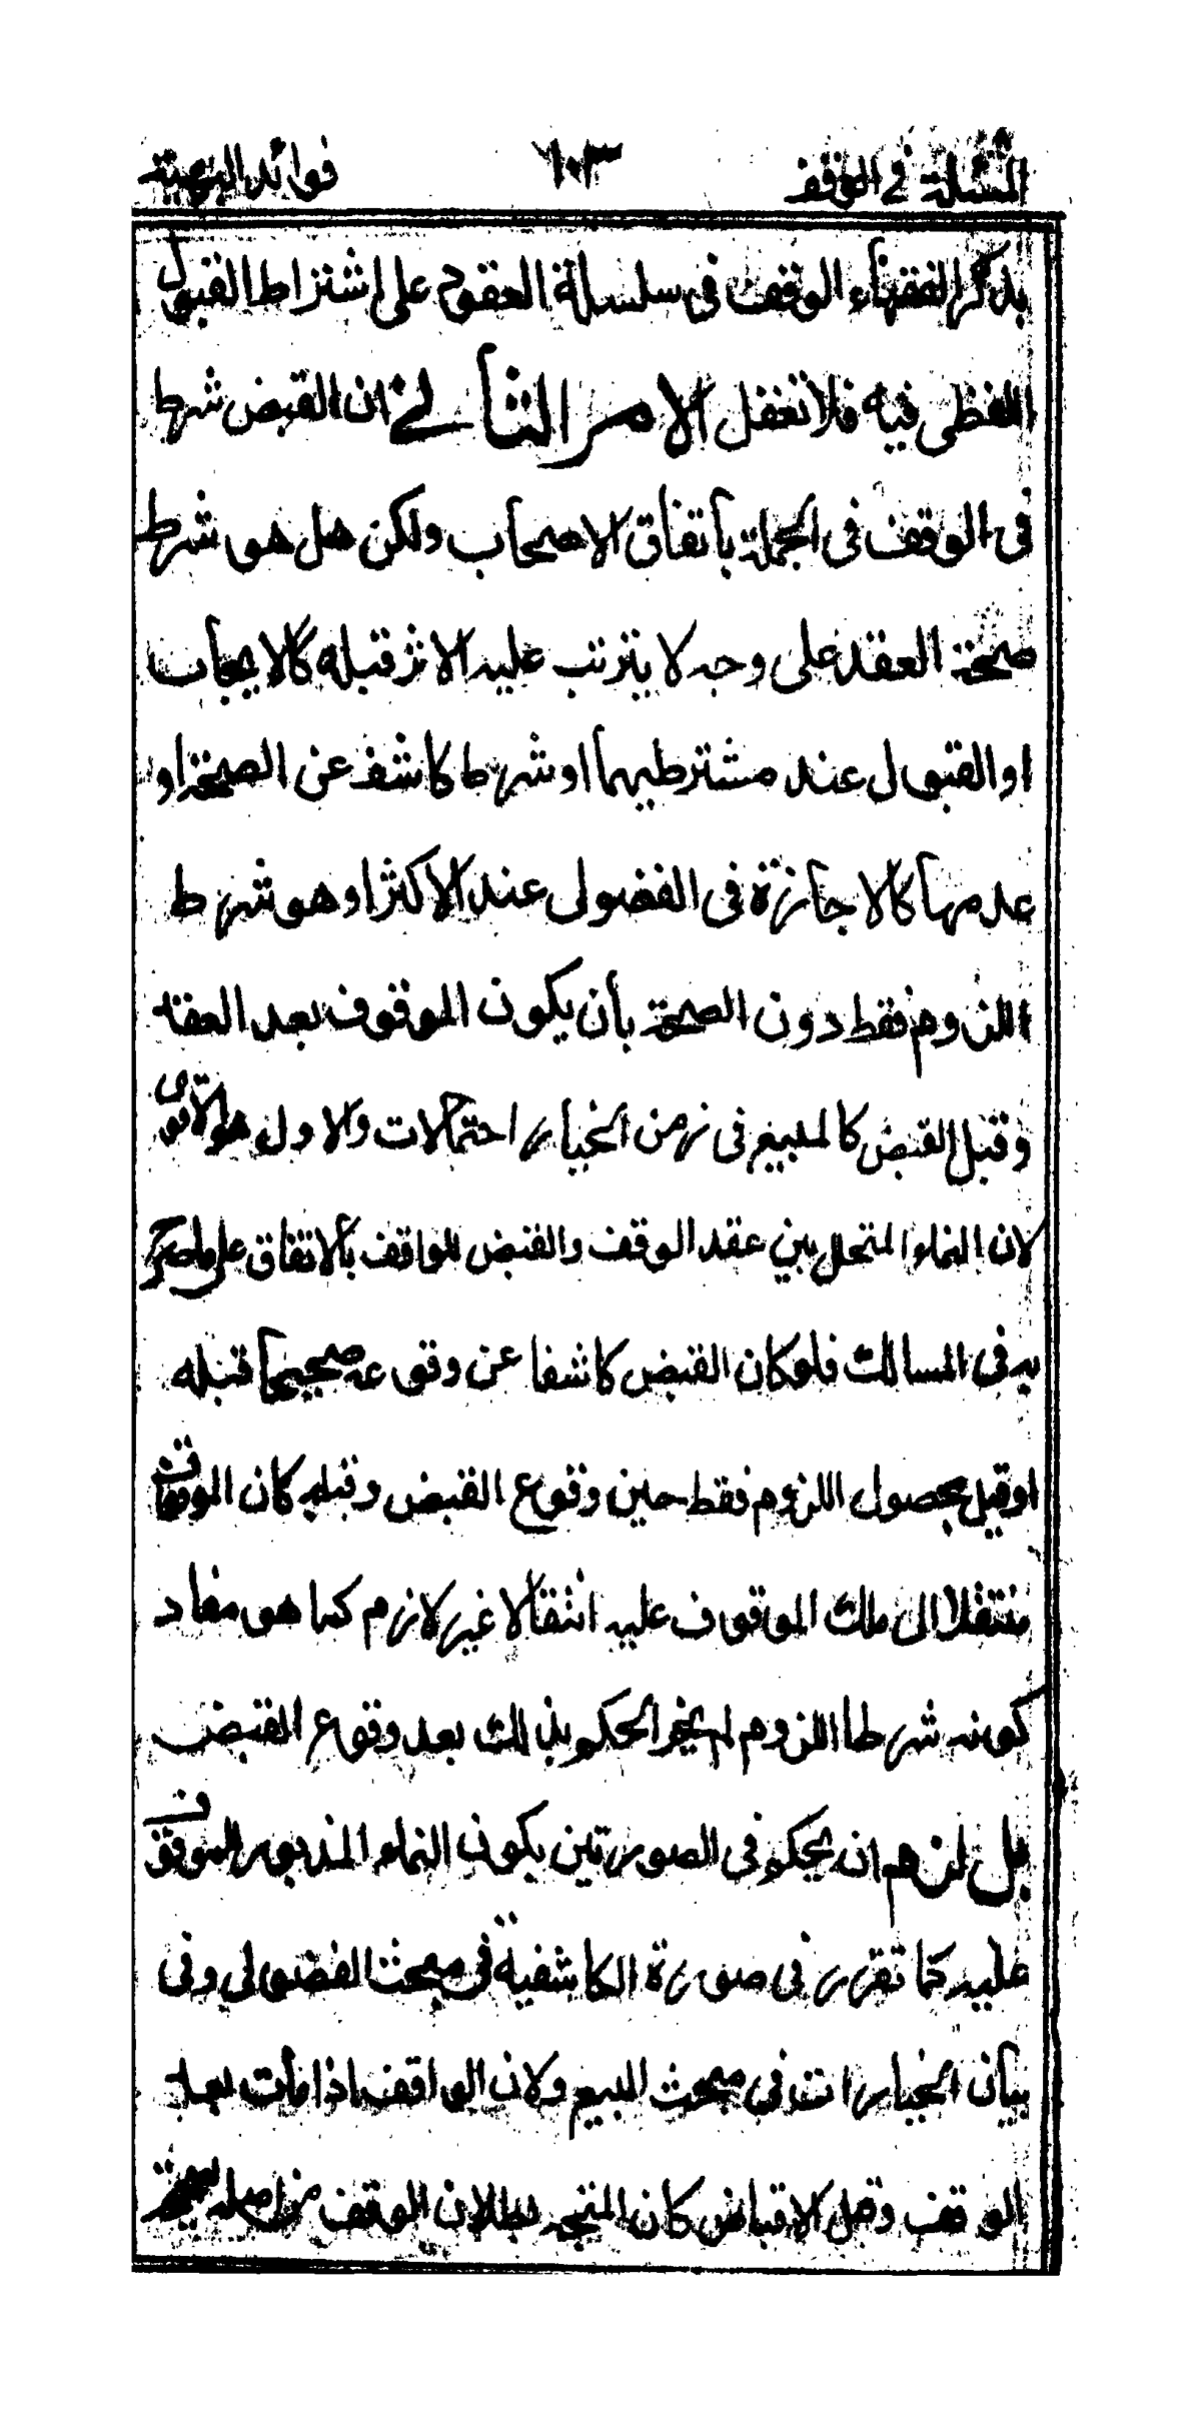 المسئلة في الوقف ١٠٣ فوائد البهية
بذكر الفقهاء الوقف في سلسلة العقود على اشتراط القبول
اللفظى فيه فلا تغفل الامر الثانى ان القبض شرط
فى الوقف فى الجملة باتفاق الاصحاب ولكن هل هو شرط
صحة العقد على وجه لا يترتب عليه الاثر قبله كالايجاب
او القبول عند مشترطيهما او شرط كاشف عن الصحة او
عدمها كالاجازة فى الفضولى عند الاكثر او هو شرط
اللزوم فقط دون الصحة بأن يكون الموقوف بعد العقد
وقبل القبض كالمبيع فى زمن الخيار احتمالات والاول هو الاقوى
لان النماء المتخلل بين عقد الوقف والقبض للواقف بالاتفاق على ماصرح
به فى المسالك فلو كان القبض كاشفا عن وقوعه صحيحا قبله
او قيل بحصول اللزوم فقط حين وقوع القبض وقبله كان الوقف
منتقلا الى ملك الموقوف عليه انتقالا غير لازم كما هو مفاد
كونه شرطا اللزوم لم يخبر الحكم بذالك بعد وقوع القبض
بل لزم ان يحكم فى الصورتين بكون النماء المذبور للموقوف
عليه كما تقرر فى صورة الكاشفية فى مبحث الفضولي وفى
بيان الخيارات فى مبحث البيع ولان الواقف اذا مات بعد
الوقف وقبل الاقباض كان المتجه بطلان الوقف من اصله